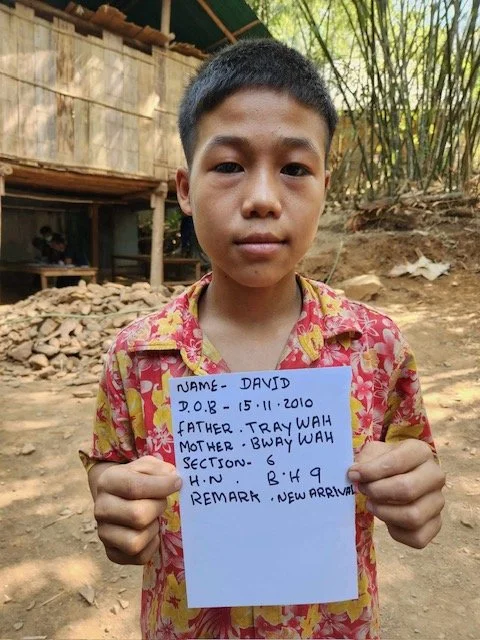 NAME- DAVID
D.O.B - 15.11.2010
FATHER . TRAY WAH
MOTHER . BWAY WAH
SECTION- 6
H.N . B.H 9
REMARK . NEW ARRIVAL